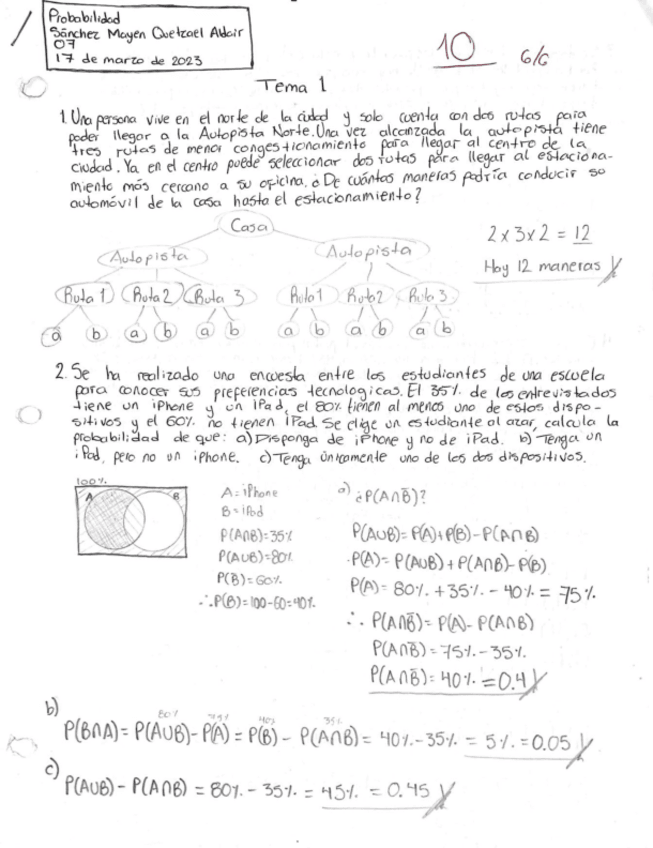 Probabilidad
Sánchez Mayen Quetzael Aldair
07
17 de marzo de 2023
10 6/6
Tema 1
1. Una persona vive en el norte de la ciudad y solo cuenta con dos rutas para
poder llegar a la Autopista Norte. Una vez alcanzada la autopista tiene
tres rutas de menor congestionamiento para llegar al centro de la
ciudad. Ya en el centro puede seleccionar dos rutas para llegar al estaciona-
miento más cercano a su oficina. ¿De cuántas maneras podría conducir so
automóvil de la casa hasta el estacionamiento?
Casa
Autopista Autopista
Ruta 1 Ruta 2 Ruta 3 Ruta 1 Ruta 2 Ruta 3
a b a b a b a b a b a b
2 x 3 x 2 = 12
Hay 12 maneras
2. Se ha realizado una encuesta entre los estudiantes de una escuela
para conocer sus preferencias tecnologicas. El 35% de los entrevistados
tiene un iPhone y un iPad, el 80% tienen al menos uno de estos dispo-
sitivos y el 60% no tienen iPad. Se elige un estudiante al azar, calcula la
probabilidad de que: a) Disponga de iPhone y no de iPad. b) Tenga un
iPad, pero no un iphone. c) Tenga únicamente uno de los dos dispositivos.
100%
A B
A = iPhone
B = iPad
P(A∩B)=35%
P(A∪B)=80%
P(B̄)=60%
∴ P(B)=100-60=40%
a) ¿P(A∩B̄)?
P(A∪B)=P(A)+P(B)-P(A∩B)
P(A)= P(A∪B)+P(A∩B)-P(B)
P(A)= 80% + 35% - 40% = 75%
∴ P(A∩B̄)= P(A)- P(A∩B)
P(A∩B̄)= 75% - 35%
P(A∩B̄)= 40% = 0.4
b)
80% 75% 40% 35%
P(B∩Ā)= P(A∪B)- P(A) = P(B) - P(A∩B) = 40% - 35% = 5% = 0.05
c)
P(A∪B) - P(A∩B) = 80% - 35% = 45% = 0.45